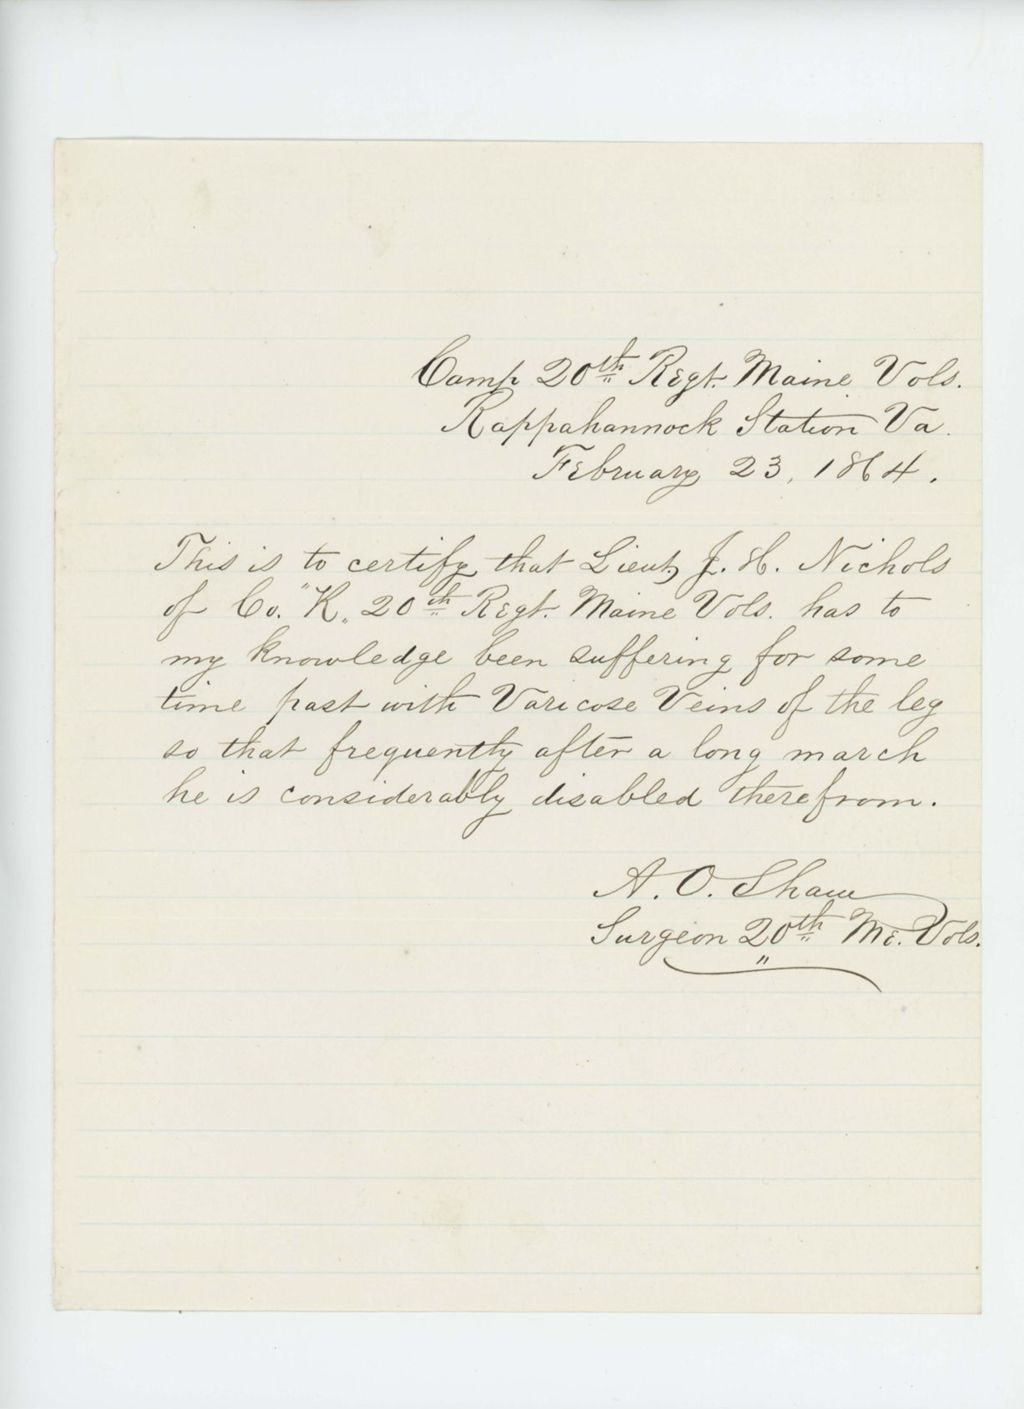 Camp 20th Regt. Maine Vols.
Rappahannock Station Va.
February 23, 1864.
This is to certify that Lieut. J. H. Nichols
of Co. "K" 20th Regt. Maine Vols. has to
my knowledge been suffering for some
time past with Varicose Veins of the leg
so that frequently after a long march
he is considerably disabled therefrom.
A. O. Shaw
Surgeon 20th Me. Vols.